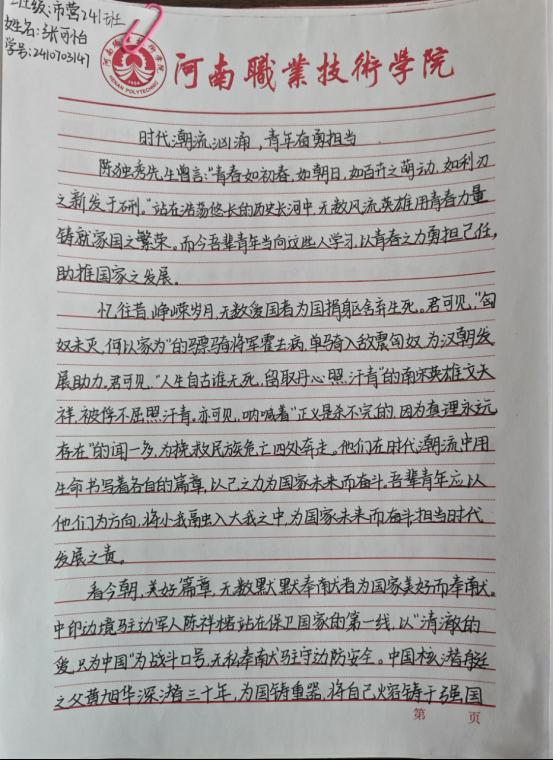 班级:市营241班
姓名:张可怡
学号:2410703147
河南職業技術学院
HENAN POLYTECHNIC
时代潮流汹涌,青年有勇担当
陈独秀先生曾言:"青春如初春,如朝日,如百卉之萌动,如利刃
之新发于硎。"站在浩荡悠长的历史长河中,无数风流英雄用青春力量
铸就家国之繁荣。而今吾辈青年当向这些人学习,以青春之力勇担己任,
助推国家之发展。
忆往昔,峥嵘岁月,无数爱国者为国捐躯舍弃生死。君可见,"匈
奴未灭,何以家为"的骠骑将军霍去病,单骑入敌震匈奴,为汉朝发
展助力。君可见,"人生自古谁无死,留取丹心照汗青"的南宋英雄文天
祥,被俘不屈照汗青。亦可见,呐喊着"正义是杀不完的,因为真理永远
存在"的闻一多,为挽救民族危亡四处奔走。他们在时代潮流中用
生命书写着各自的篇章,以己之力为国家未来而奋斗。吾辈青年应以
他们为方向,将小我融入大我之中,为国家未来而奋斗担当时代
发展之责。
看今朝,美好篇章,无数默默奉献者为国家美好而奉献。
中印边境驻边军人陈祥榕站在保卫国家的第一线,以"清澈的
爱,只为中国"为战斗口号,无私奉献驻守边防安全。中国核潜艇
之父黄旭华深潜三十年,为国铸重器,将自己熔铸于强国
第 页